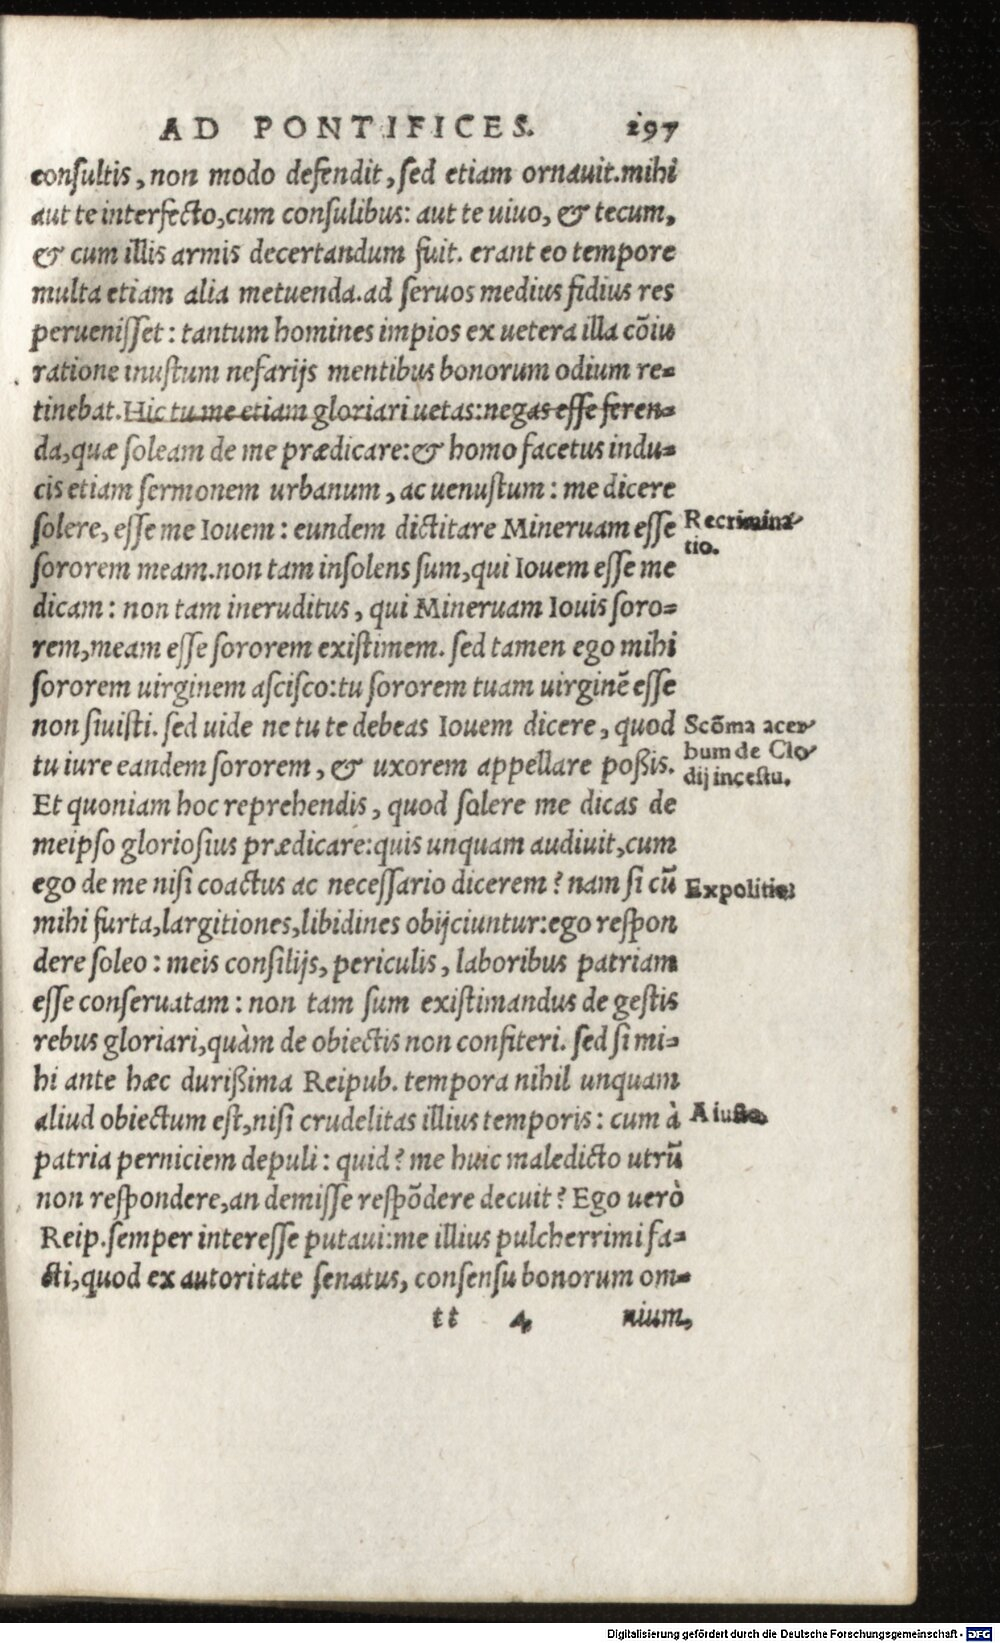 AD PONTIFICES. 297
consultis, non modo defendit, sed etiam ornauit. mihi
aut te interfecto, cum consulibus: aut te uiuo, & tecum,
& cum illis armis decertandum fuit. erant eo tempore
multa etiam alia metuenda. ad seruos medius fidius res
peruenisset: tantum homines impios ex uetera illa cōiu
ratione inustum nefarijs mentibus bonorum odium re=
tinebat. Hic tu me etiam gloriari uetas: negas esse feren=
da, quæ soleam de me prædicare: & homo facetus indu=
cis etiam sermonem urbanum, ac uenustum: me dicere
solere, esse me Iouem: eundem dictitare Mineruam esse
Recrimina-
tio.
sororem meam. non tam insolens sum, qui Iouem esse me
dicam: non tam ineruditus, qui Mineruam Iouis soro=
rem, meam esse sororem existimem. sed tamen ego mihi
sororem uirginem ascisco: tu sororem tuam uirginē esse
non siuisti. sed uide ne tu te debeas Iouem dicere, quod
Scōma acer-
bum de Clo-
dij incestu.
tu iure eandem sororem, & uxorem appellare poßis.
Et quoniam hoc reprehendis, quod solere me dicas de
meipso gloriosius prædicare: quis unquam audiuit, cum
ego de me nisi coactus ac necessario dicerem? nam si cū
Expolitio.
mihi furta, largitiones, libidines obijciuntur: ego respon
dere soleo: meis consilijs, periculis, laboribus patriam
esse conseruatam: non tam sum existimandus de gestis
rebus gloriari, quàm de obiectis non confiteri. sed si mi=
hi ante hæc durißima Reipub. tempora nihil unquam
aliud obiectum est, nisi crudelitas illius temporis: cum à
A iusto.
patria perniciem depuli: quid? me huic maledicto utrū
non respondere, an demisse respōdere decuit? Ego uerò
Reip. semper interesse putaui: me illius pulcherrimi fa=
cti, quod ex autoritate senatus, consensu bonorum om=
tt 4 nium,
Digitalisierung gefördert durch die Deutsche Forschungsgemeinschaft - DFG